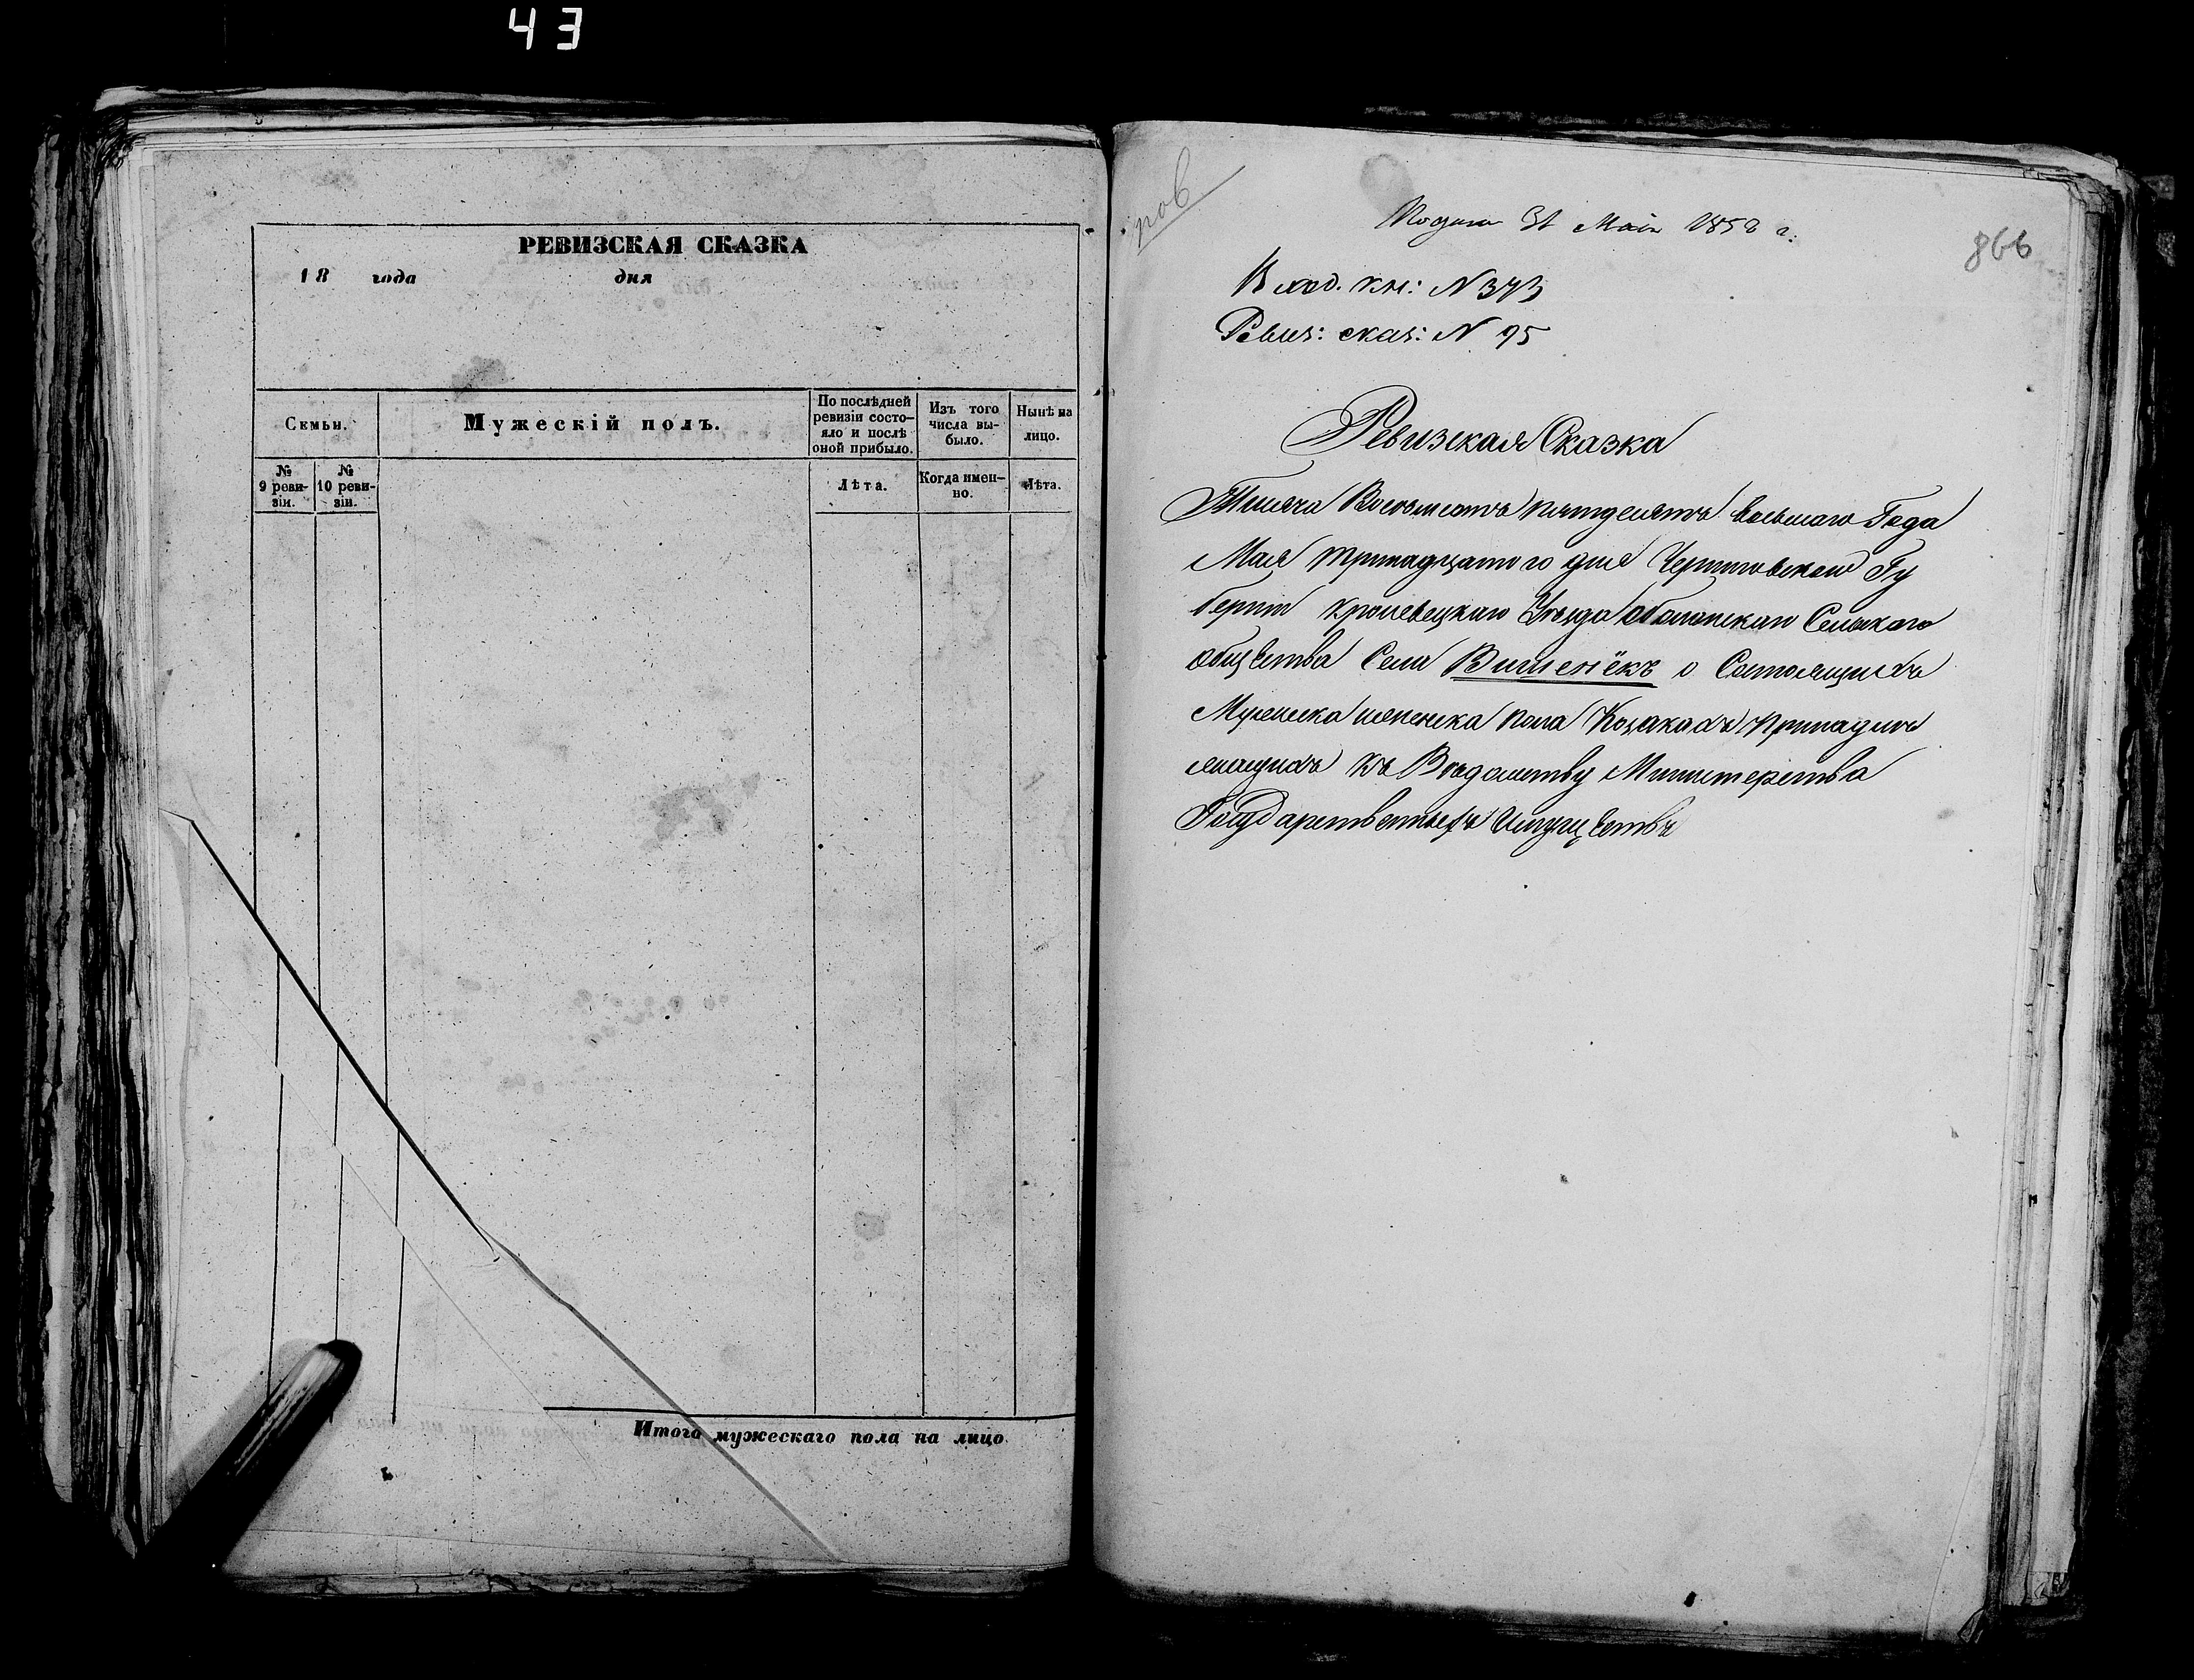 43
РЕВИЗСКАЯ СКАЗКА
18 года дня
Семьи.
Мужескій полъ.
По послѣдней ревизіи состо-
яло и послѣ
оной прибыло.
Изъ того
числа вы-
было.
Нынѣ на
лицо.
№
9 реви-
зіи.
№
10 реви-
зіи.
Лѣта.
Когда имен-
но.
Лѣта.
Итого мужескаго пола на лицо
пов
Подана 31 Мая 1858 г.
866
Вход. кн: N 373
Ревиз: сказ: N 95
Ревизская Сказка
Тысяча Восемъсотъ пятдесятъ восьмаго Года
Мая тринадцатого дня Черниговской Гу
берніи Кролевецкаго Уѣзда Оболонскаго Сельскаго
общества Села Вишенёкъ о Состоящихъ
Мужеска женска пола Козакахъ Принадле
жащихъ къ Вѣдомству Министерства
Государственныхъ Имуществъ